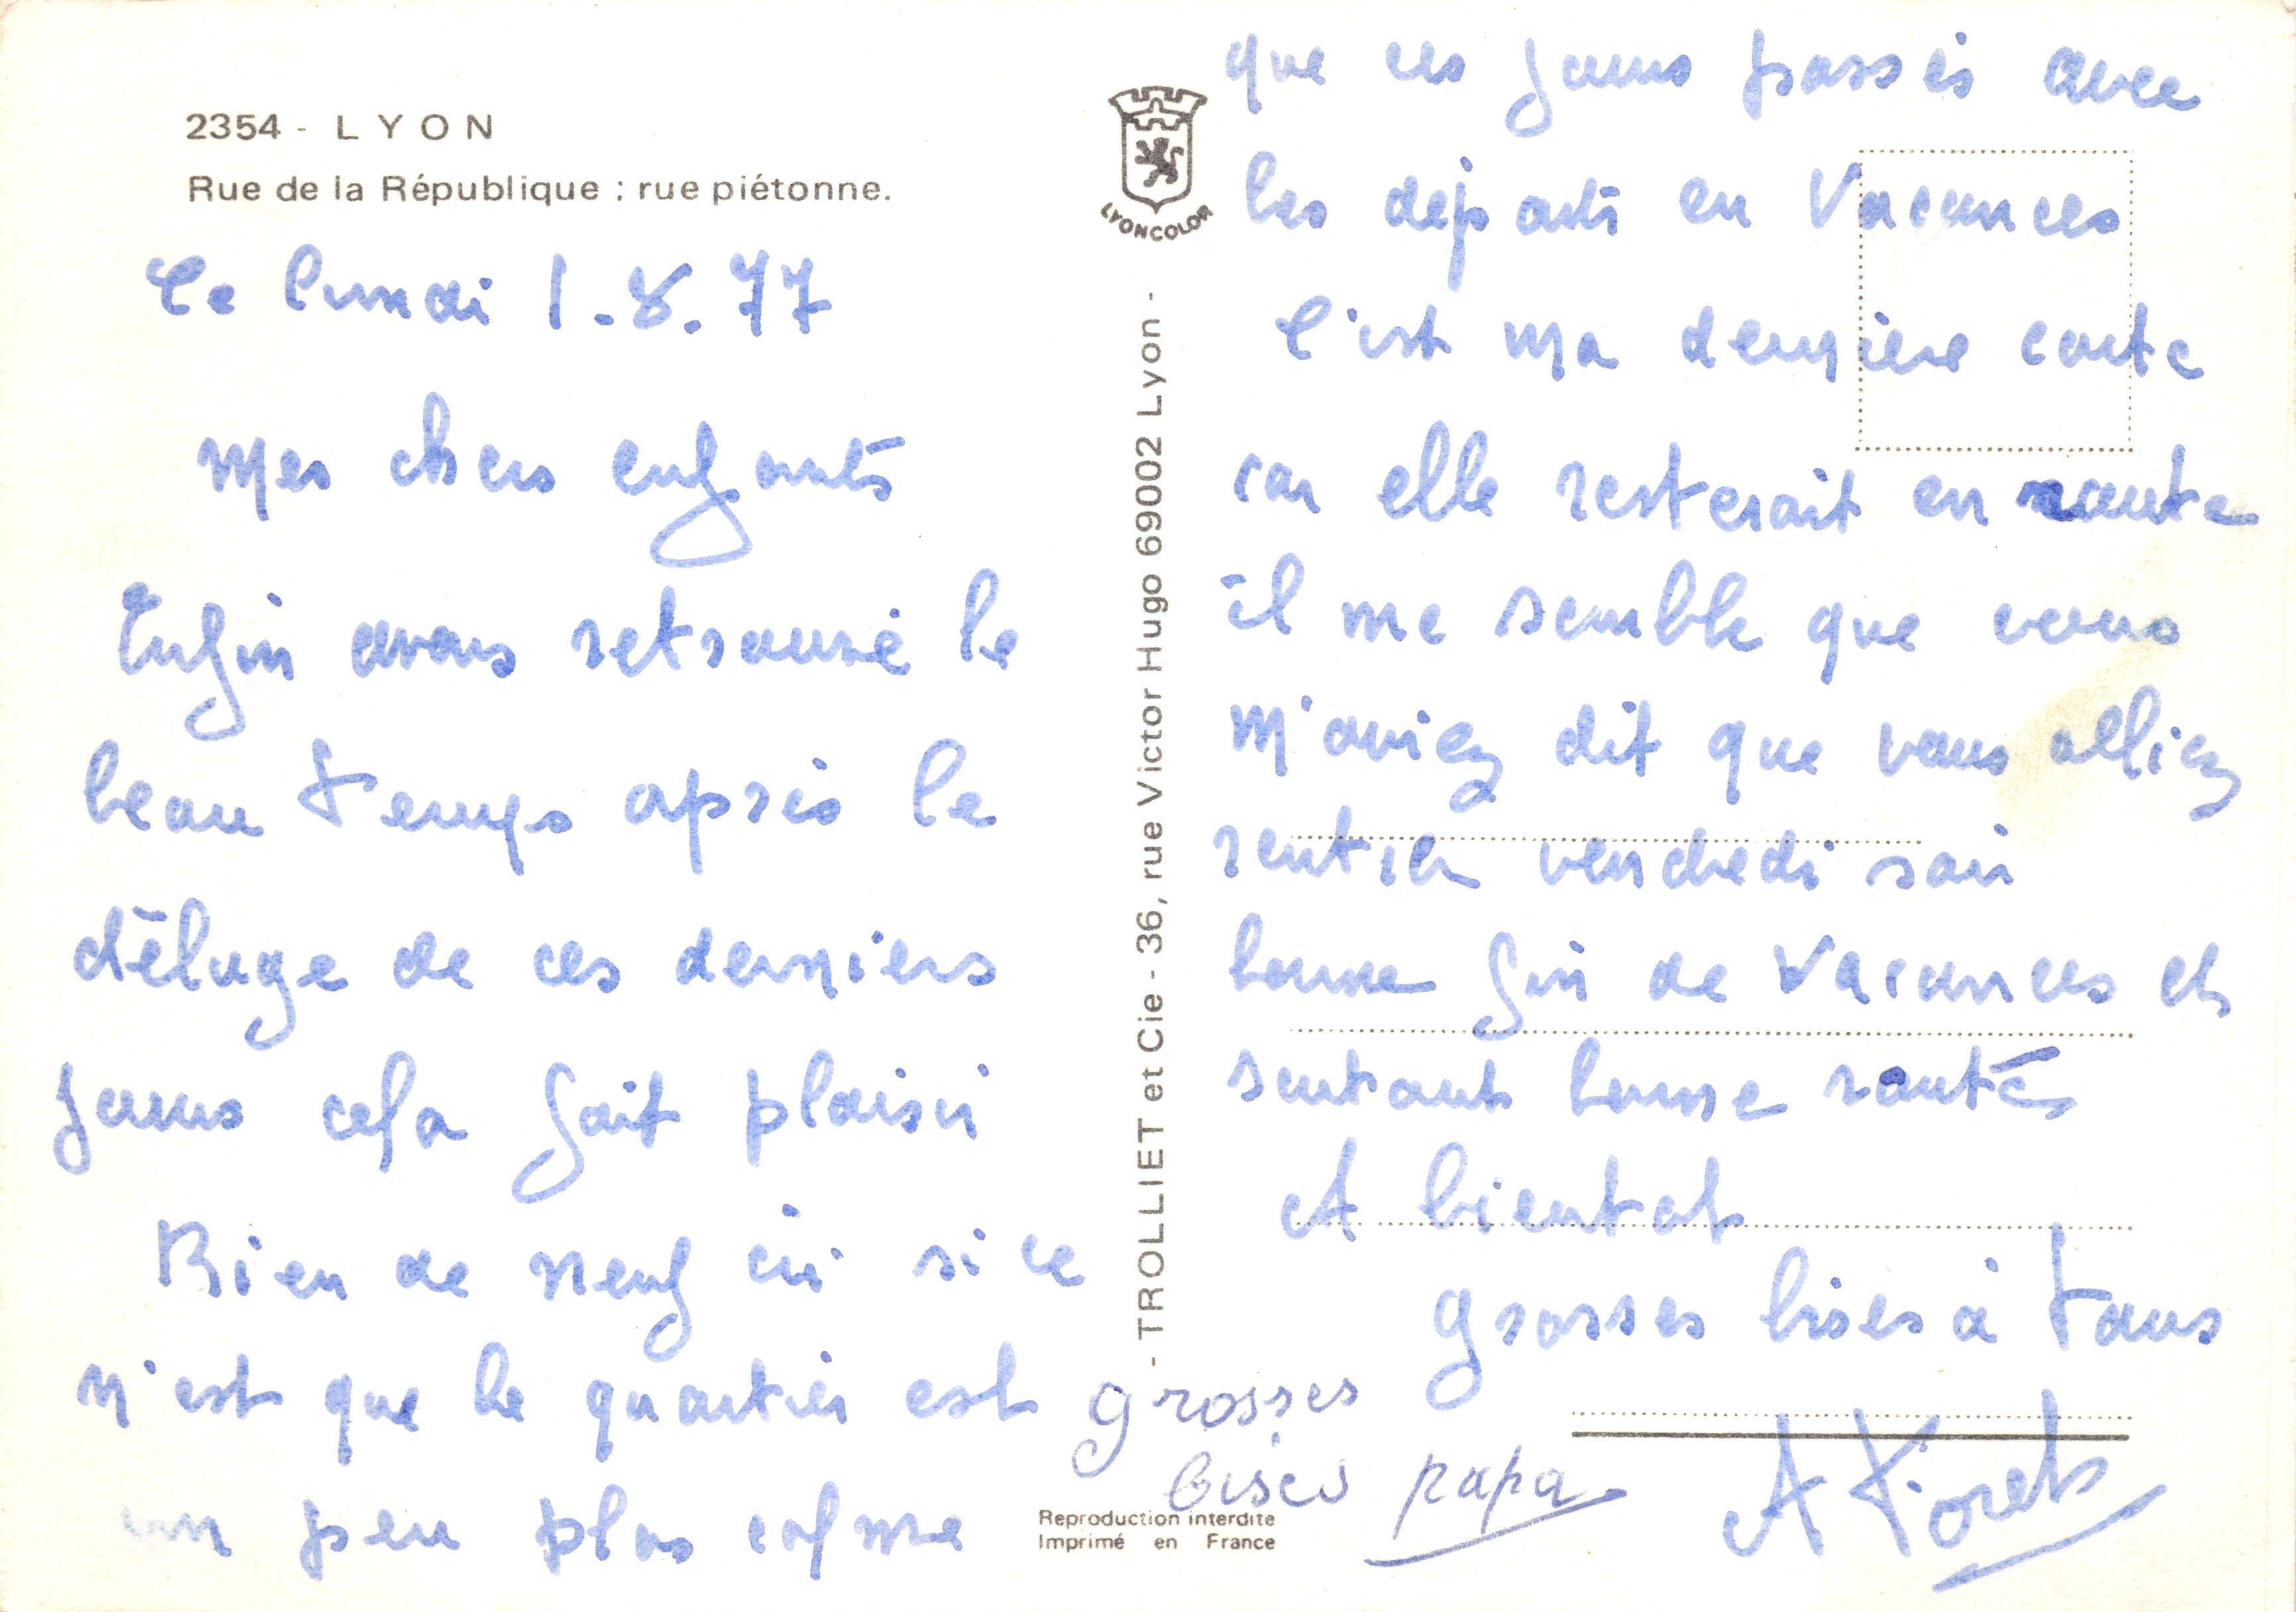 2354 - LYON
Rue de la République : rue piétonne.
LYONCOLOR
Ce lundi 1.8.77
Mes chers enfants
Enfin avons retrouvé le
beau temps après le
déluge de ces derniers
jours cela fait plaisir
Rien de neuf ici si ce
n'est que le quartier est
un peu plus calme
que ces jours passés avec
les départs en Vacances
C'est ma dernière carte
car elle resterait en route
il me semble que vous
m'aviez dit que vous alliez
rentrer vendredi soir
bonne fin de Vacances et
surtout bonne santé
A bientot
grosses bises à tous
grosses
bises papa
- TROLLIET et Cie - 36, rue Victor Hugo 69002 Lyon -
Reproduction interdite
Imprimé en France